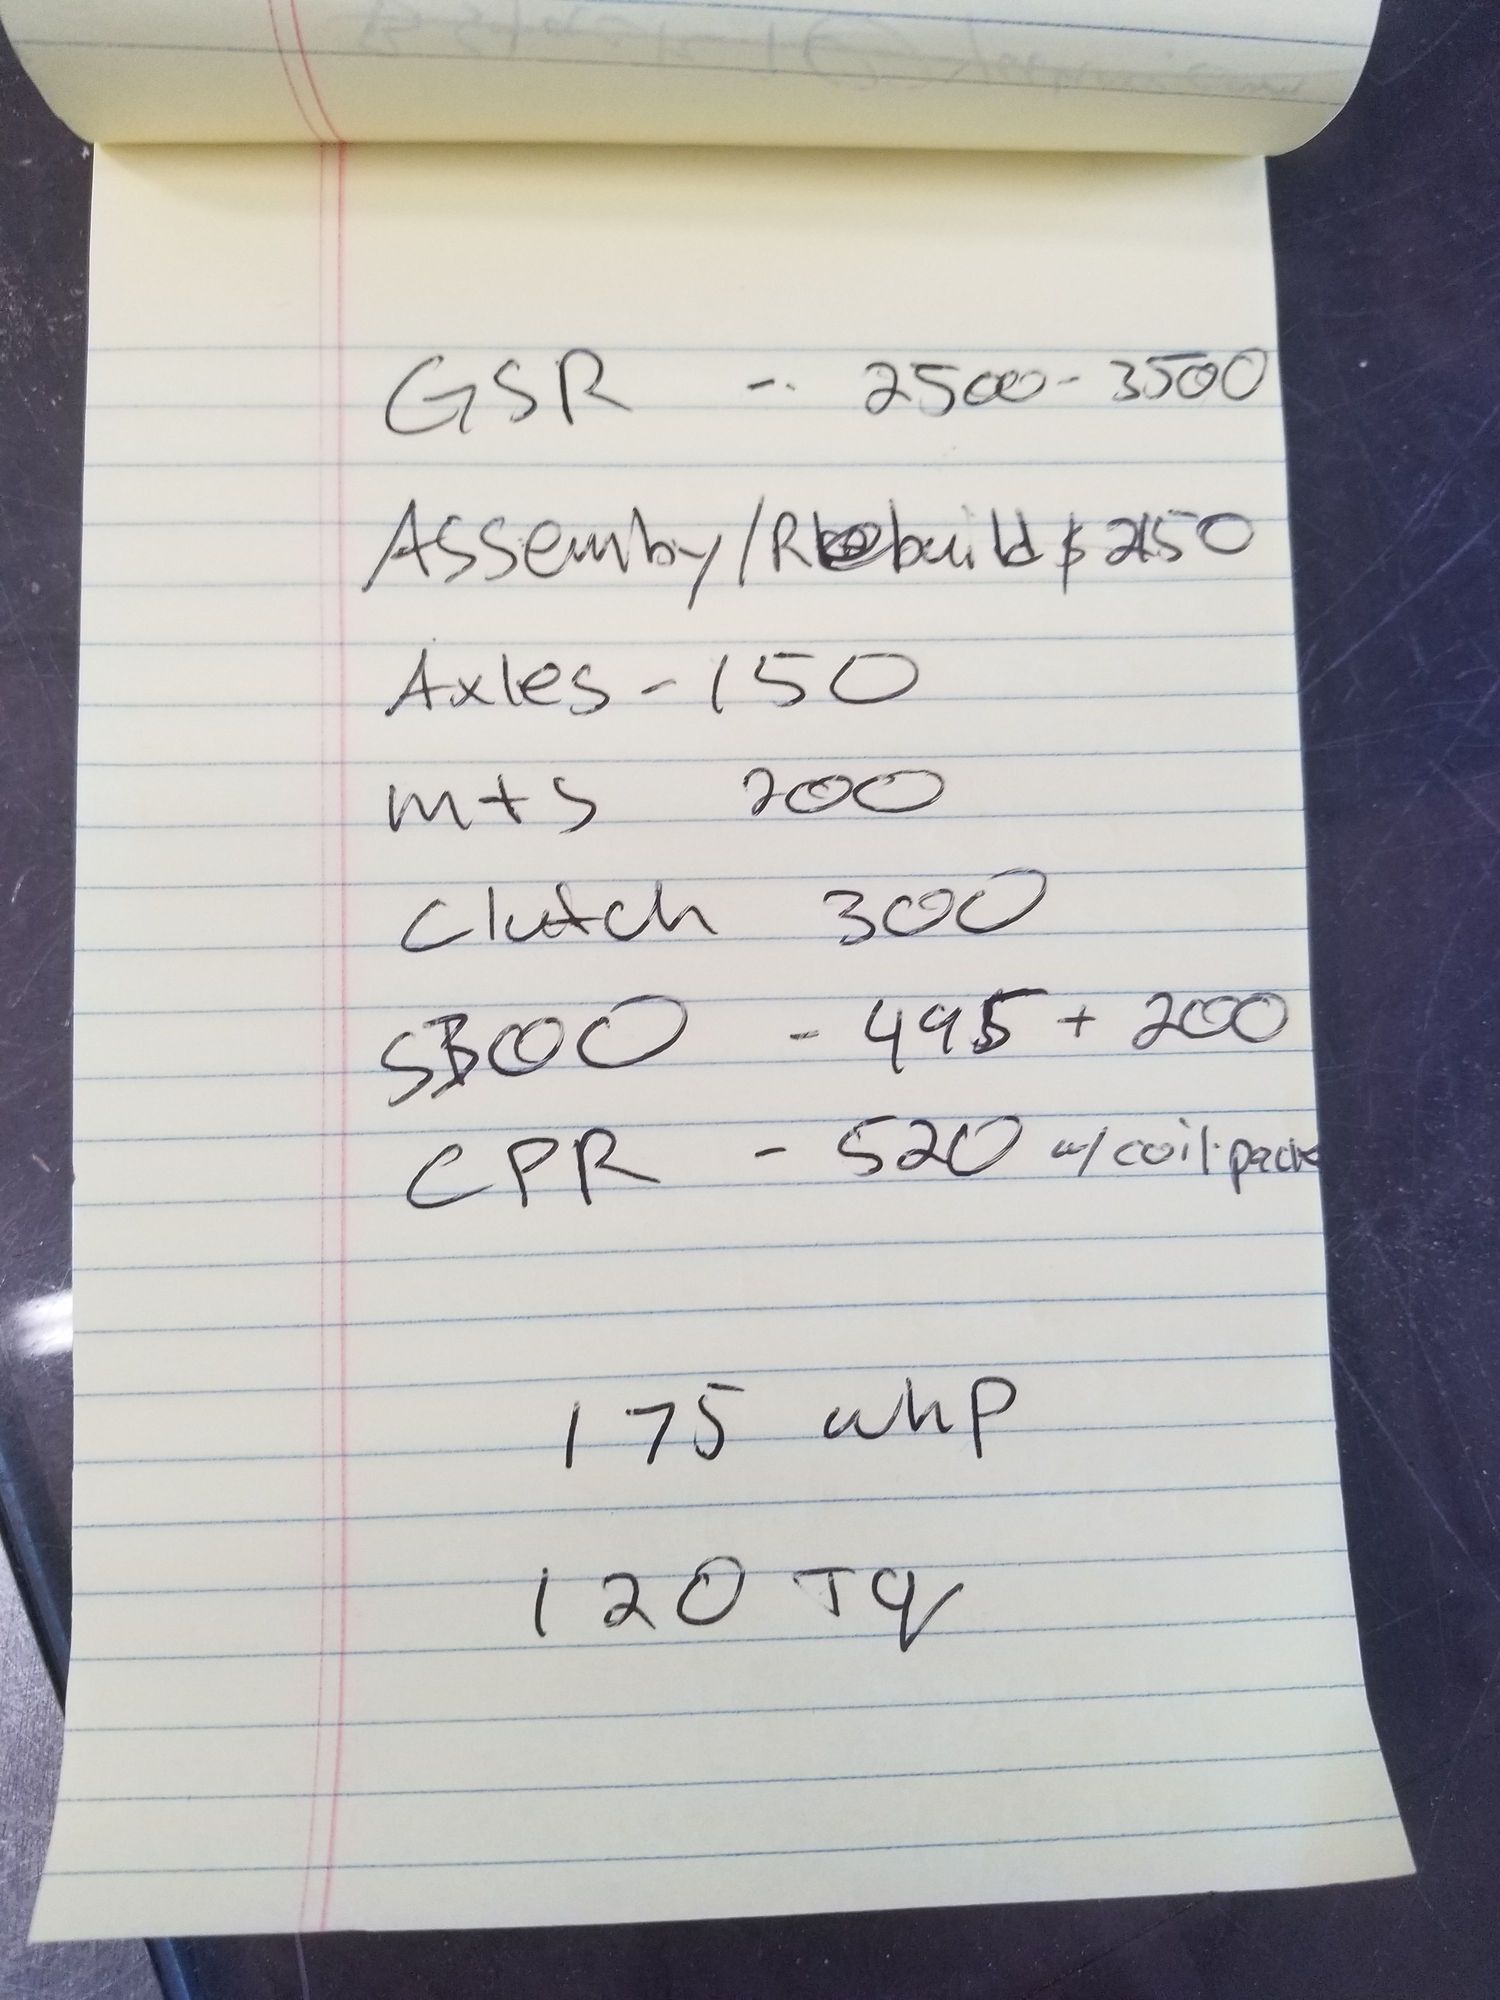 GSR - 2500 - 3500
Assemby/Rebuild $ 2150
Axles - 150
mts 200
Clutch 300
S300 - 495 + 200
CPR - 520 w/ coil packs
175 whp
120 Tq